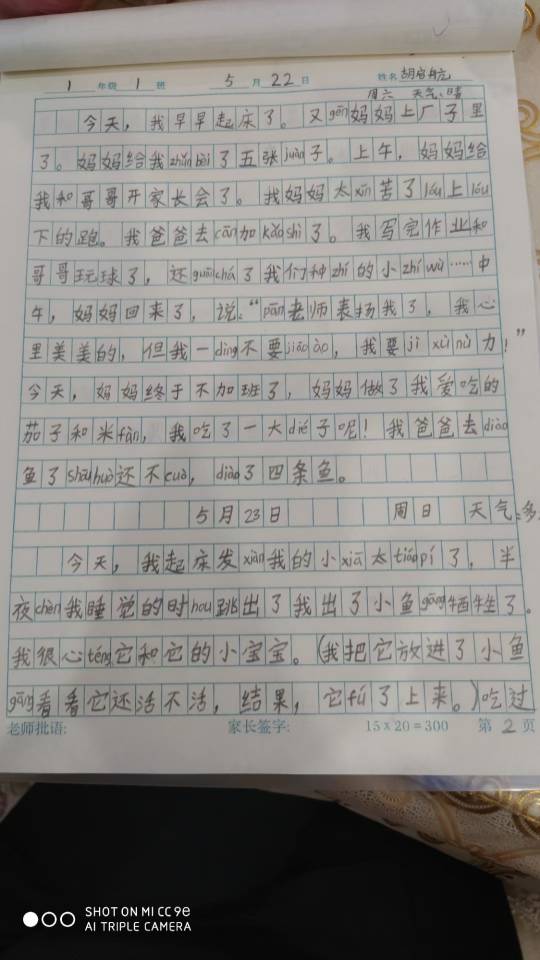 1 年级 1 班 5 月 22 日 姓名 胡启航
周六 天气:晴
今天，我早早起床了。又gēn妈妈上厂子里
了。妈妈给我zhǔnbèi了五张juàn子。上午，妈妈给
我和哥哥开家长会了。我妈妈太xīn苦了lóu上lóu
下的跑。我爸爸去cān加kǎoshì了。我写完作业和
哥哥玩球了，还guānchá了我们种zhí的小zhíwù……中
午，妈妈回来了，说:“pān老师表扬我了，我心
里美美的，但我一dìng不要jiāoào，我要jìxùnǔ力！”
今天，妈妈终于不加班了，妈妈做了我爱吃的
茄子和米fàn，我吃了一大dié子呢！我爸爸去diào
鱼了shōuhuò还不cuò，diào了四条鱼。
5月23日 周日 天气:多
今天，我起床发xiàn我的小xiā太tiáopí了，半
夜chèn我睡觉的时hou跳出了我出了小鱼gāng牺牲了。
我很心téng它和它的小宝宝。（我把它放进了小鱼
gāng看看它还活不活，结果，它fú了上来。）吃过
老师批语: 家长签字: 15×20=300 第 2 页
SHOT ON MI CC 9e
AI TRIPLE CAMERA